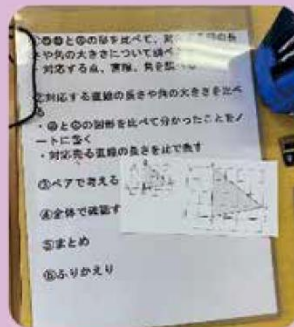 と の形を比べて、対 の長
さや角の大きさについて調べ
・対応する点、直線、角を
②対応する直線の長さや角の大きさを比べ
る
・ と の図形を比べて分かったことをノ
ートに書く
・対応する直線の長さを比で表す
③ペアで考える
④全体で確認す
⑤まとめ
⑥ふりかえり